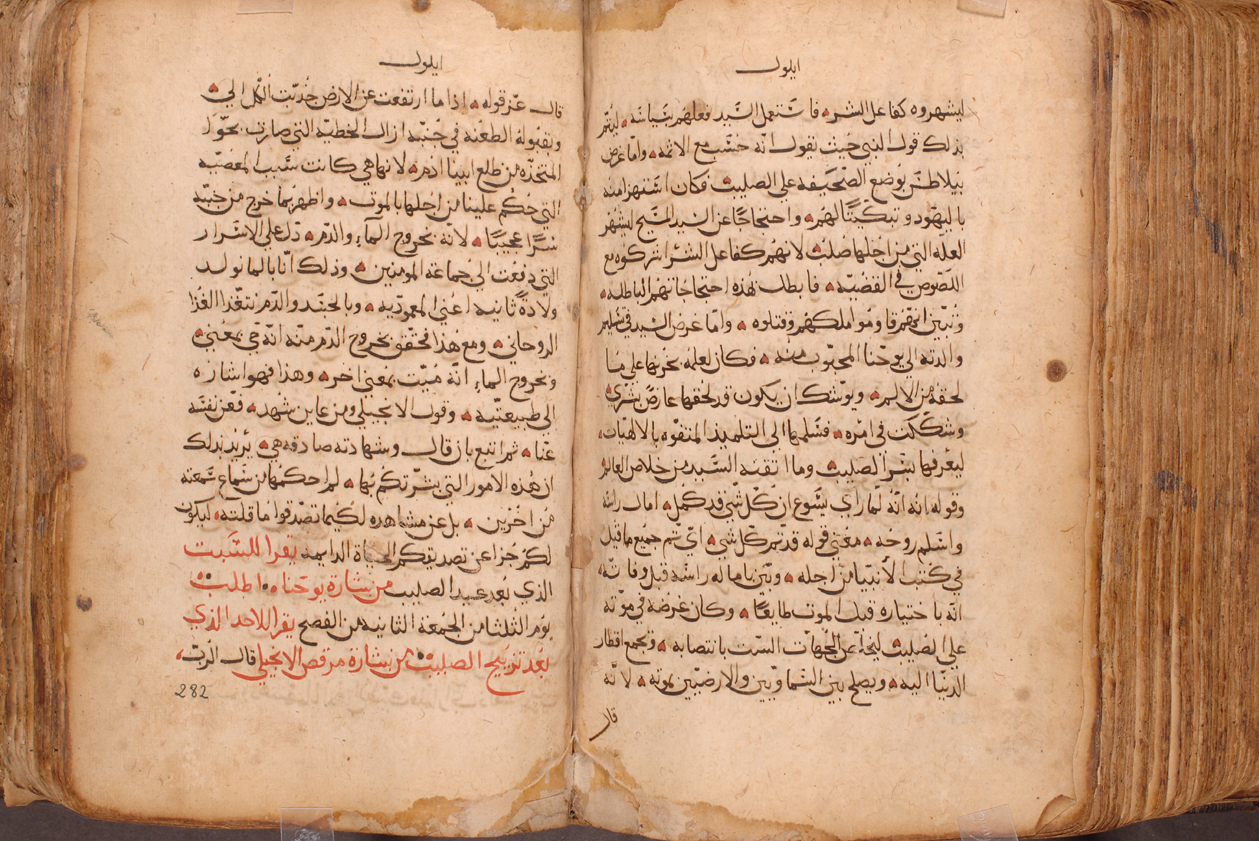 ايلول
ليشهروه كفاعل الشر فاستعمل السيد فعلهم بشياته ليتم
بذلك قول النبي حيث تقول انه حسب مع الاثمه واما غرض
بيلاطس بوضع الصحيفه على الصليب فكان اشهزا منه
باليهود وتبكيتًا لهم واحتجاجًا عن السيد المسيح ليشهر
العله التي من اجلها صلب لانهم كفاعل الشر اشركوه مع
اللصوص في القضيه فابطل بهذه احتجاجاتهم الباطله
وتبين انهم قاوموا ملكهم وقتلوه واما غرض السيد في تسليم
والدته الى يوحنا المحبوب منه فكان لعلمه بحزنها على ما
لحقه من الالم ويوشك ان يكون قد لحقها عارض بشري
وشككت في امره فسلمها الى التلميذ المتفوه بالالهيات
ليعرفها بسر الصليب وما اتقنه السيد من خلاص العالم
وقوله انه لما راى يسوع ان كل شي قد كمل امال راسه
واسلم روحه معنى قوله قد تم كل شي اي تم جميع ما قيل
في كتب الانبيا من اجله وبين باماله راسه قبل وفاته
انه باختياره قبل الموت طايعًا وكان غرضه في موته
على الصليب عن الجهات الست بانتصابه وتجمع اقطار
الدنيا اليه ويصلح بين السماويين والارضيين بموته لانه
قال
ايلول
قال عز قوله اذا ما ارتفعت عن الارض جذبت الكل الي
وبقبوله الطعنه في جنبه ازال الخطيه التي صارت بحوا
المتخذه من ضلع ابينا ادم لانها هي كانت سبب المعصيه
التي حكم علينا من اجلها بالموت واظهر بما خرج من جنبه
سرًا عجيبًا لانه بخروج الماء والدم دل على الاسرار
التي دفعت الى جماعة المومنين وذلك انا بالما نولد
ولادةً ثانيه اعني المعموديه وبالجسد والدم نتغذا الغذا
الروحاني ومع هذا فحقق بخروج الدم منه انه حي بمعنى
وبخروج الماء انه ميت بمعنى اخر وهذا فهو اشاره
الى طبيعتيه وقول الانجيلي ومن عاين شهد فعن نفسه
عنا ثم اتبع بان قال وشهادته صادقه هي يريد بذلك
ان هذه الامور التي بشرتكم بها لم احكها من سماع سمعته
من اخرين بل عن مشاهده لكيما تصدقوا ما قلته ليكون
لكم جزا عن تصديقكم الحياة الدايمه يقرا للسبت
الذي بعد عيد الصليب من بشارة يوحنا اطلب
يوم الثلثا من الجمعه الثانيه من الفصح يقرا للاحد الذي
بعد تربيح الصليب من بشارة مرقص الانجيلي قال الرب
282